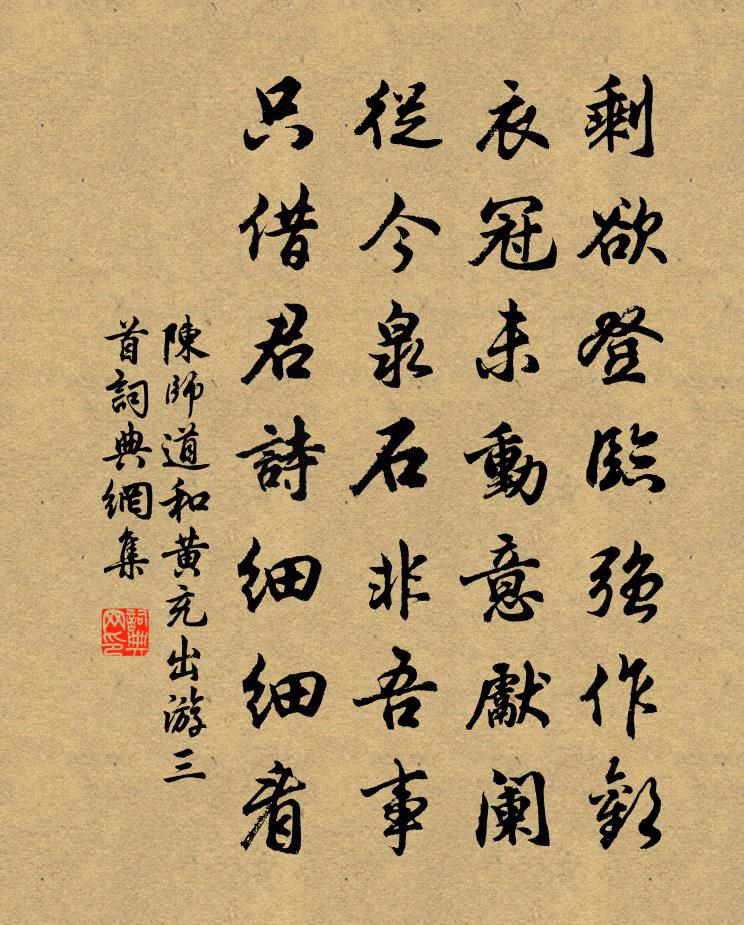 剩欲登臨强作歡
衣冠未動意獻闌
從今泉石非吾事
只借君詩細細看
陳師道和黄充出游三
首詞典網集
詞典
网印